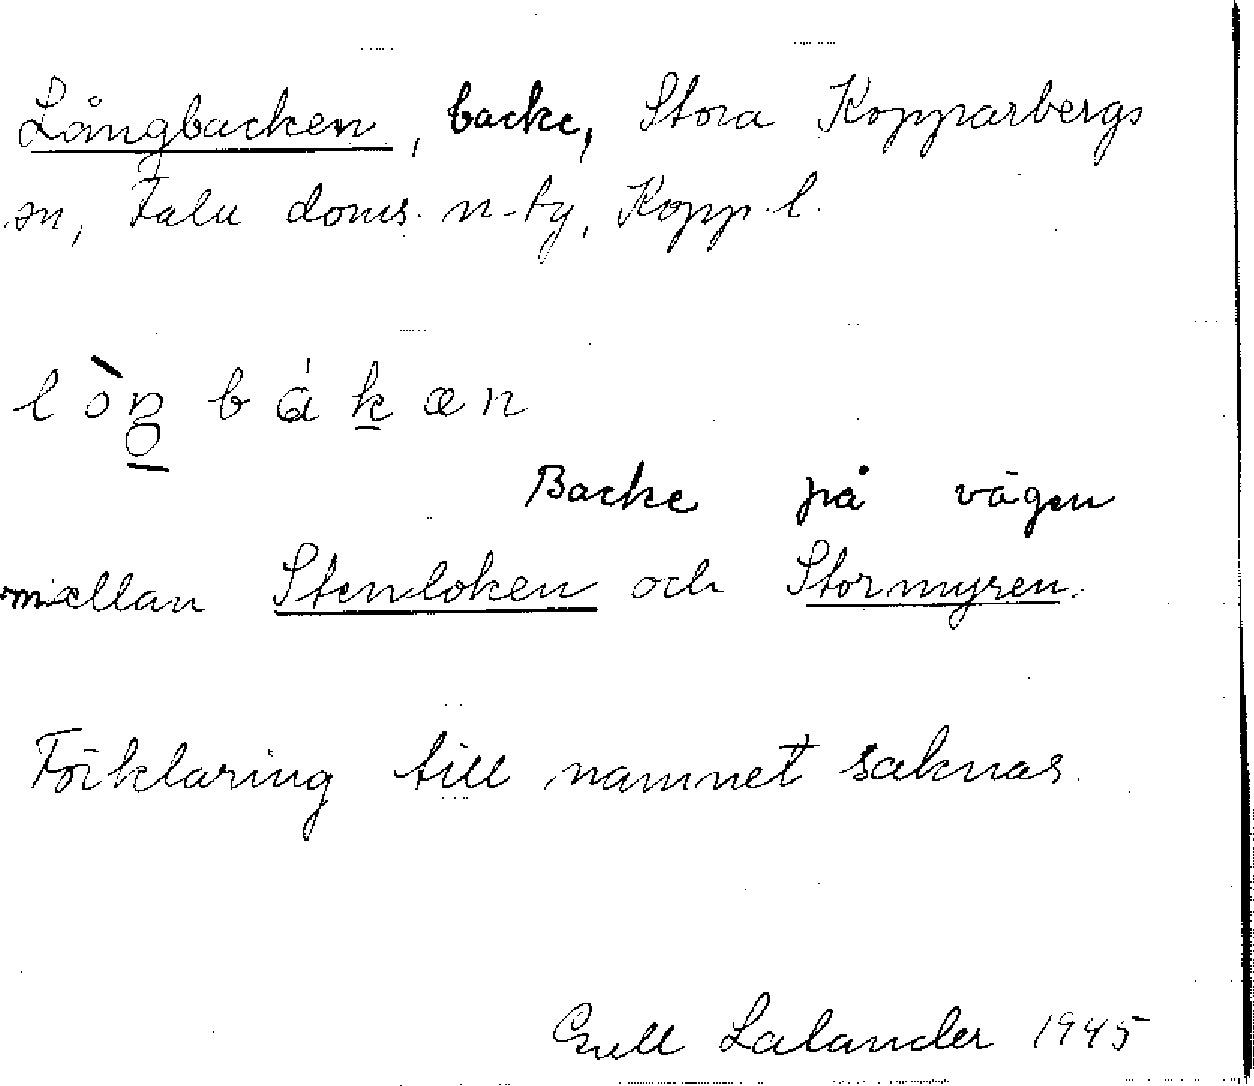 Långbacken, backe, Stora Kopparbergs
sn, Falu doms. n-ty, Kopp. l.
lòŋ bákæn
Backe på vägen
mellan Stenloken och Stormyren.
Förklaring till namnet saknas.
Gull Lalander 1945